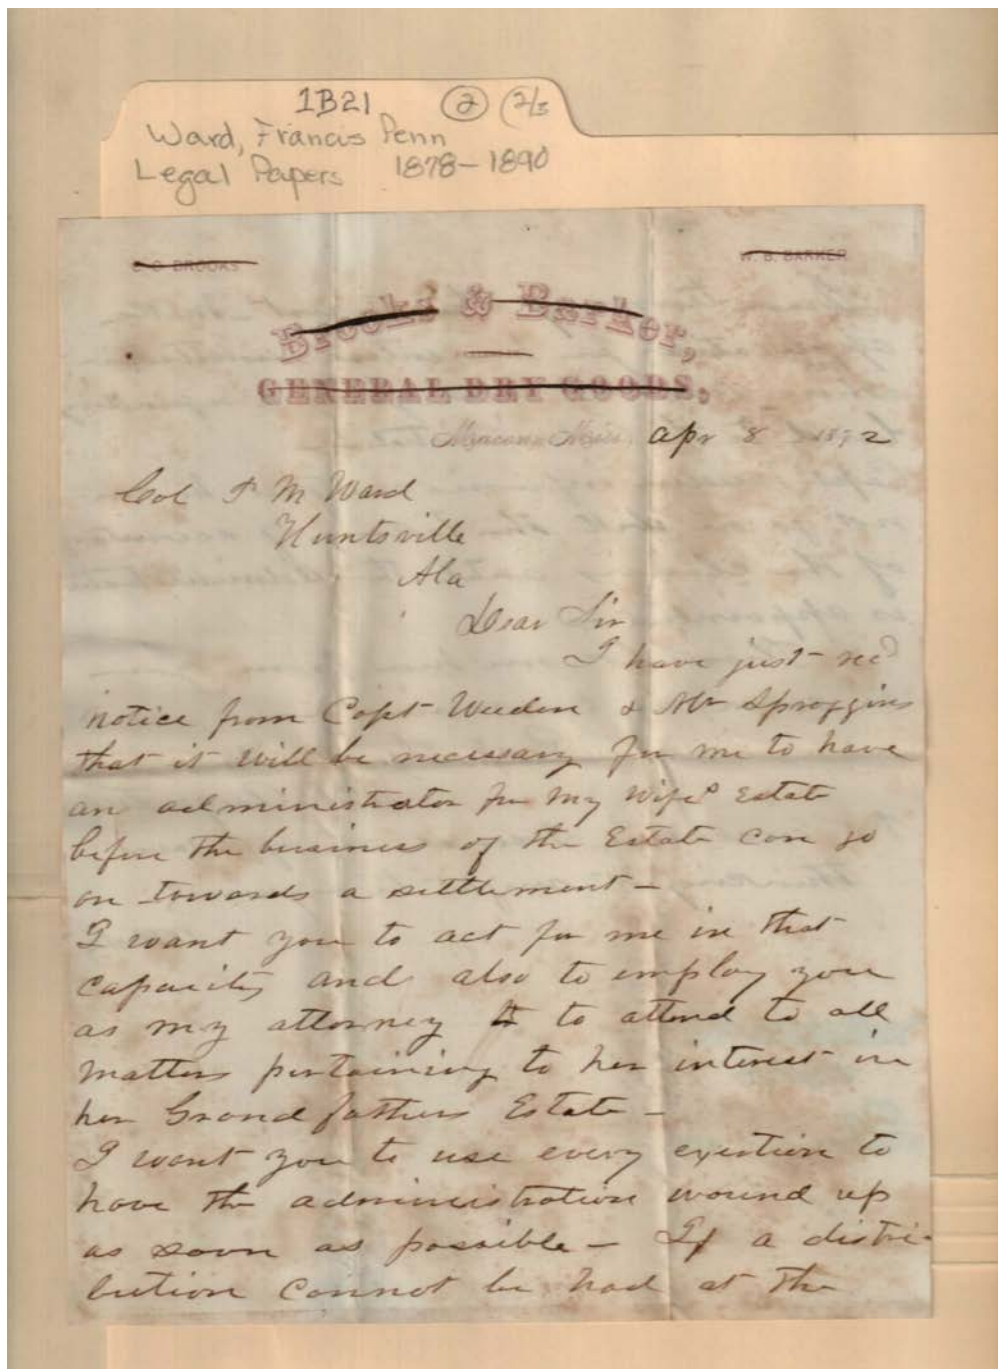 1B21 (2) (2/3
Ward, Francis Penn
Legal Papers 1878-1890
BROOKS
W. B. BARKER
Brooks & Barker,
GENERAL DRY GOODS,
Macon, Miss. Apr 8 1872
Col F M Ward
Huntsville
Ala
Dear Sir
I have just recd
notice from Capt Weeden & Mr Spraggins
that it will be necessary for me to have
an administrator for my Wifes Estate
before the business of the Estate can go
on towards a settlement –
I want you to act for me in that
capacity and also to employ you
as my attorney to attend to all
matters pertaining to her interest in
her Grand fathers Estate –
I want you to use every exertion to
have the administration wound up
as soon as possible – If a distri-
bution cannot be had at the